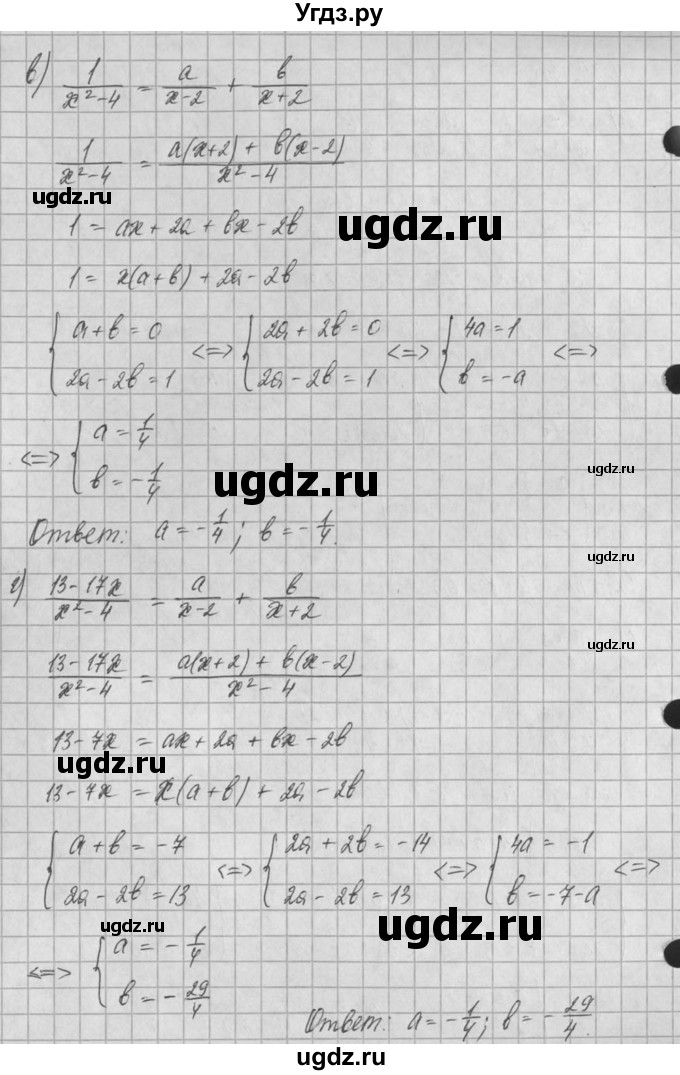 Угдз.ру
в) 1/(x²-4) = a/(x-2) + b/(x+2)
1/(x²-4) = (a(x+2) + b(x-2))/(x²-4)
ugdz.ru
1 = ax + 2a + bx - 2b
ugdz.ru
1 = x(a+b) + 2a - 2b
{ a + b = 0 <=> { 2a + 2b = 0 <=> { 4a = 1 <=>
2a - 2b = 1 2a - 2b = 1 b = -a
<=> { a = 1/4
b = -1/4
ugdz.ru
ugdz.ru
Ответ: a = -1/4; b = -1/4.
ugdz.ru
г) (13-17x)/(x²-4) = a/(x-2) + b/(x+2)
ugdz.ru
(13-17x)/(x²-4) = (a(x+2) + b(x-2))/(x²-4)
13-7x = ax + 2a + bx - 2b
ugdz.ru
13-7x = x(a+b) + 2a - 2b
{ a + b = -7 <=> { 2a + 2b = -14 <=> { 4a = -1 <=>
2a - 2b = 13 2a - 2b = 13 b = -7-a
ugdz.ru
ugdz.ru
<=> { a = -1/4
b = -29/4
Ответ: a = -1/4; b = -29/4.
ugdz.ru